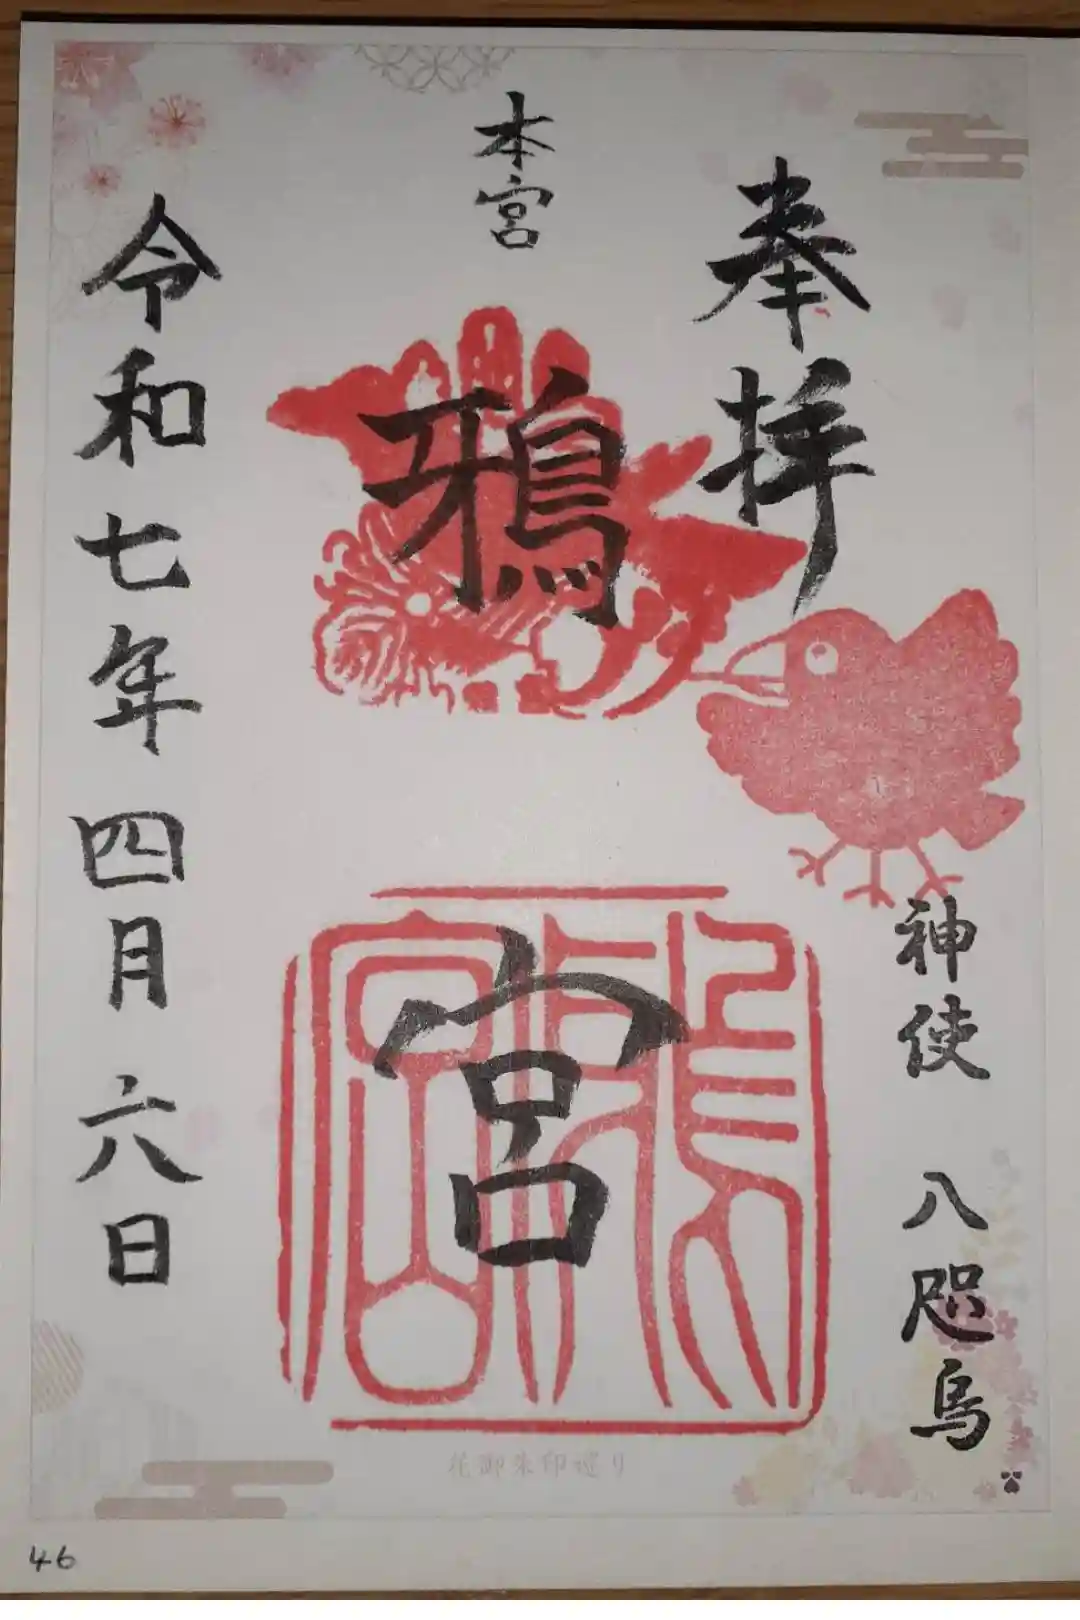 奉拝
神使 八咫烏
本宮
鴉宮
鴉宮
令和七年四月六日
花御朱印巡り
46